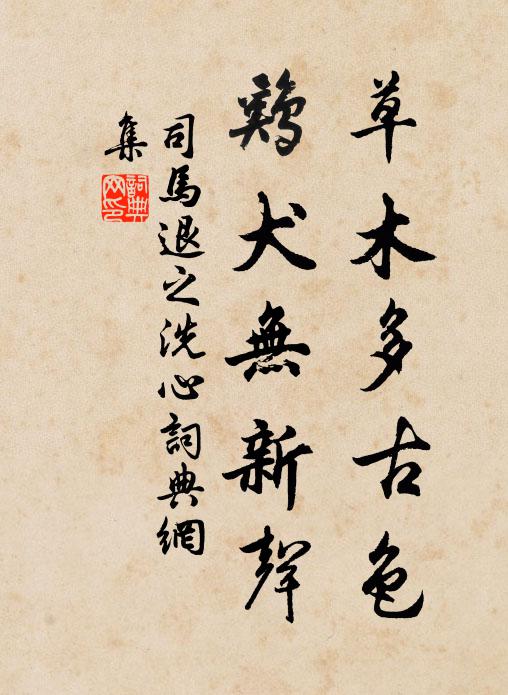 草木多古色
鷄犬無新聲
司馬退之洗心詞典網
集
詞典
网印